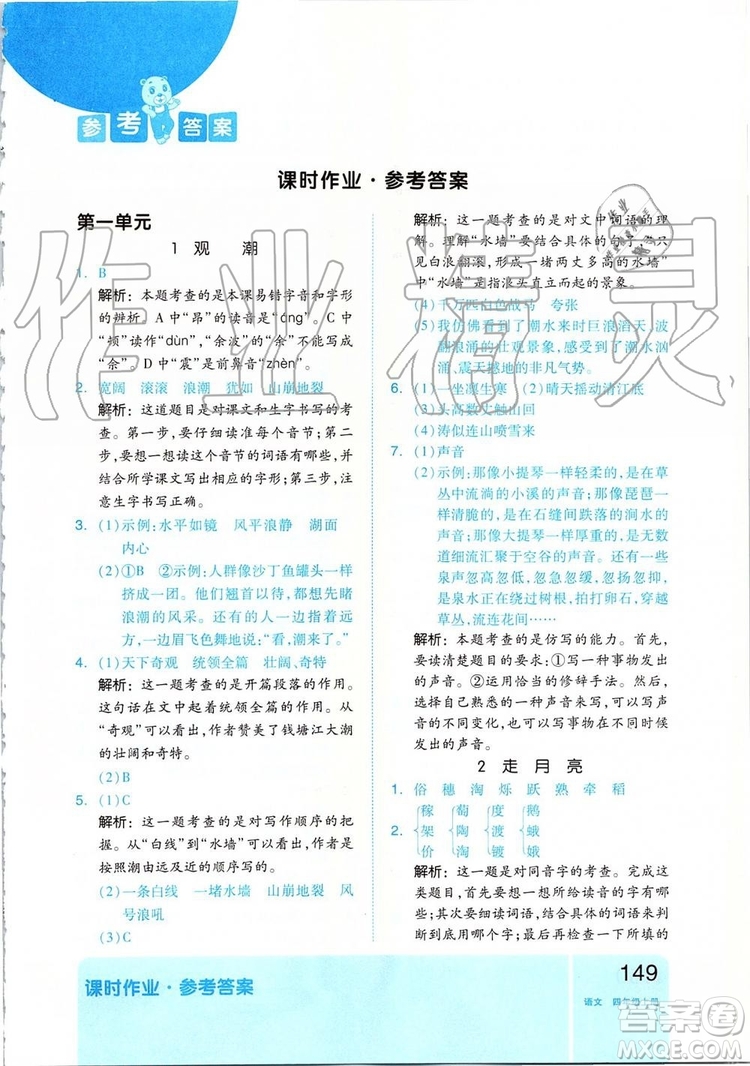 参考答案
课时作业·参考答案
第一单元
1 观 潮
1. B
解析：本题考查的是本课易错字音和字形
的辨析。A中“昂”的读音是“áng”。C中
“顿”读作“dùn”，“余波”的“余”不能写成
“佘”。D中“震”是前鼻音“zhèn”。
2. 宽阔 滚滚 浪潮 犹如 山崩地裂
解析：这道题是对课文和生字书写的考
查。第一步，要仔细读准每个音节；第二
步，要想含有这个音节的词语有哪些，并
结合所学课文写出相应的字形；第三步，注
意生字书写正确。
3. (1)示例：水平如镜 风平浪静 湖面
内心
(2)①B ②示例：人群像沙丁鱼罐头一样
挤成一团。他们翘首以待，都盼望着能一睹
浪潮的风采。还有人拿着望远镜，看向远
方，一边眉飞色舞地说：“看，潮来了。”
4. (1)天下奇观 统领全篇 壮阔、奇特
解析：这一题考查的是开篇段落的作用。
这句话在文中起着统领全篇的作用，从
“奇观”可以看出，作者赞美了钱塘江大潮
的壮阔和奇特。
(2)B
5. (1)C
解析：这一题考查的是对写作顺序的把
握。从“白线”到“水墙”，可以看出，作者是
按照潮由远及近的顺序写的。
(2)一条白线 一堵水墙 山崩地裂 风
号浪吼
(3)C
解析：这一题考查的是对文中词语的理
解。理解“水墙”要结合具体的句子，“只见
白浪翻滚，形成一堵两丈多高的水墙”
中“水墙”是指浪头直立而起的景象。
(4)千万匹白色战马 夸张
(5)我仿佛看到了潮水来时巨浪滔天、波
翻浪涌的壮观景象，感受到了潮水气势汹
涌、震天撼地的非凡气势。
6. (1)一坐凛生寒 (2)晴天摇动清江底
(3)头高数丈触山回
(4)涛似连山喷雪来
7. (1)声音
(2)示例：那像小提琴一样轻柔的，是草丛
中流淌的小溪的声音；那像琵琶一
样清脆的，是在石缝间跌落的涧水
的声音；那像大提琴一样厚重的，是无数
道细流汇聚于空谷的声音；那像
泉声忽高忽低、忽急忽缓、忽响忽沉，
是泉水绕过树根，拍打卵石，穿越
草丛，流连花间……
解析：本题考查的是仿写的能力。首先，
要读清楚题目的要求：①写一种事物发出
的声音；②运用恰当的修辞手法。然后，
选择自己熟悉的事物来写，可以写事物发
声的不同变化，也可以写事物在不同时候发
出的声音。
2 走月亮
1. 俗 穗 淘 烁 跃 熟 牵 稻
2. 稼 萄 度 鹅
架 陶 渡 蛾
价 淘 镀 娥
解析：这一题是对同音字的考查。完成这
类题目，首先要读准所给读音的字有哪
些；其次要细读词语，结合词语的意思来判
断到底用哪个字；最后再检查一下所填的
课时作业·参考答案
149
语文 四年级上册
作业精灵
答案圈
MXQE.COM